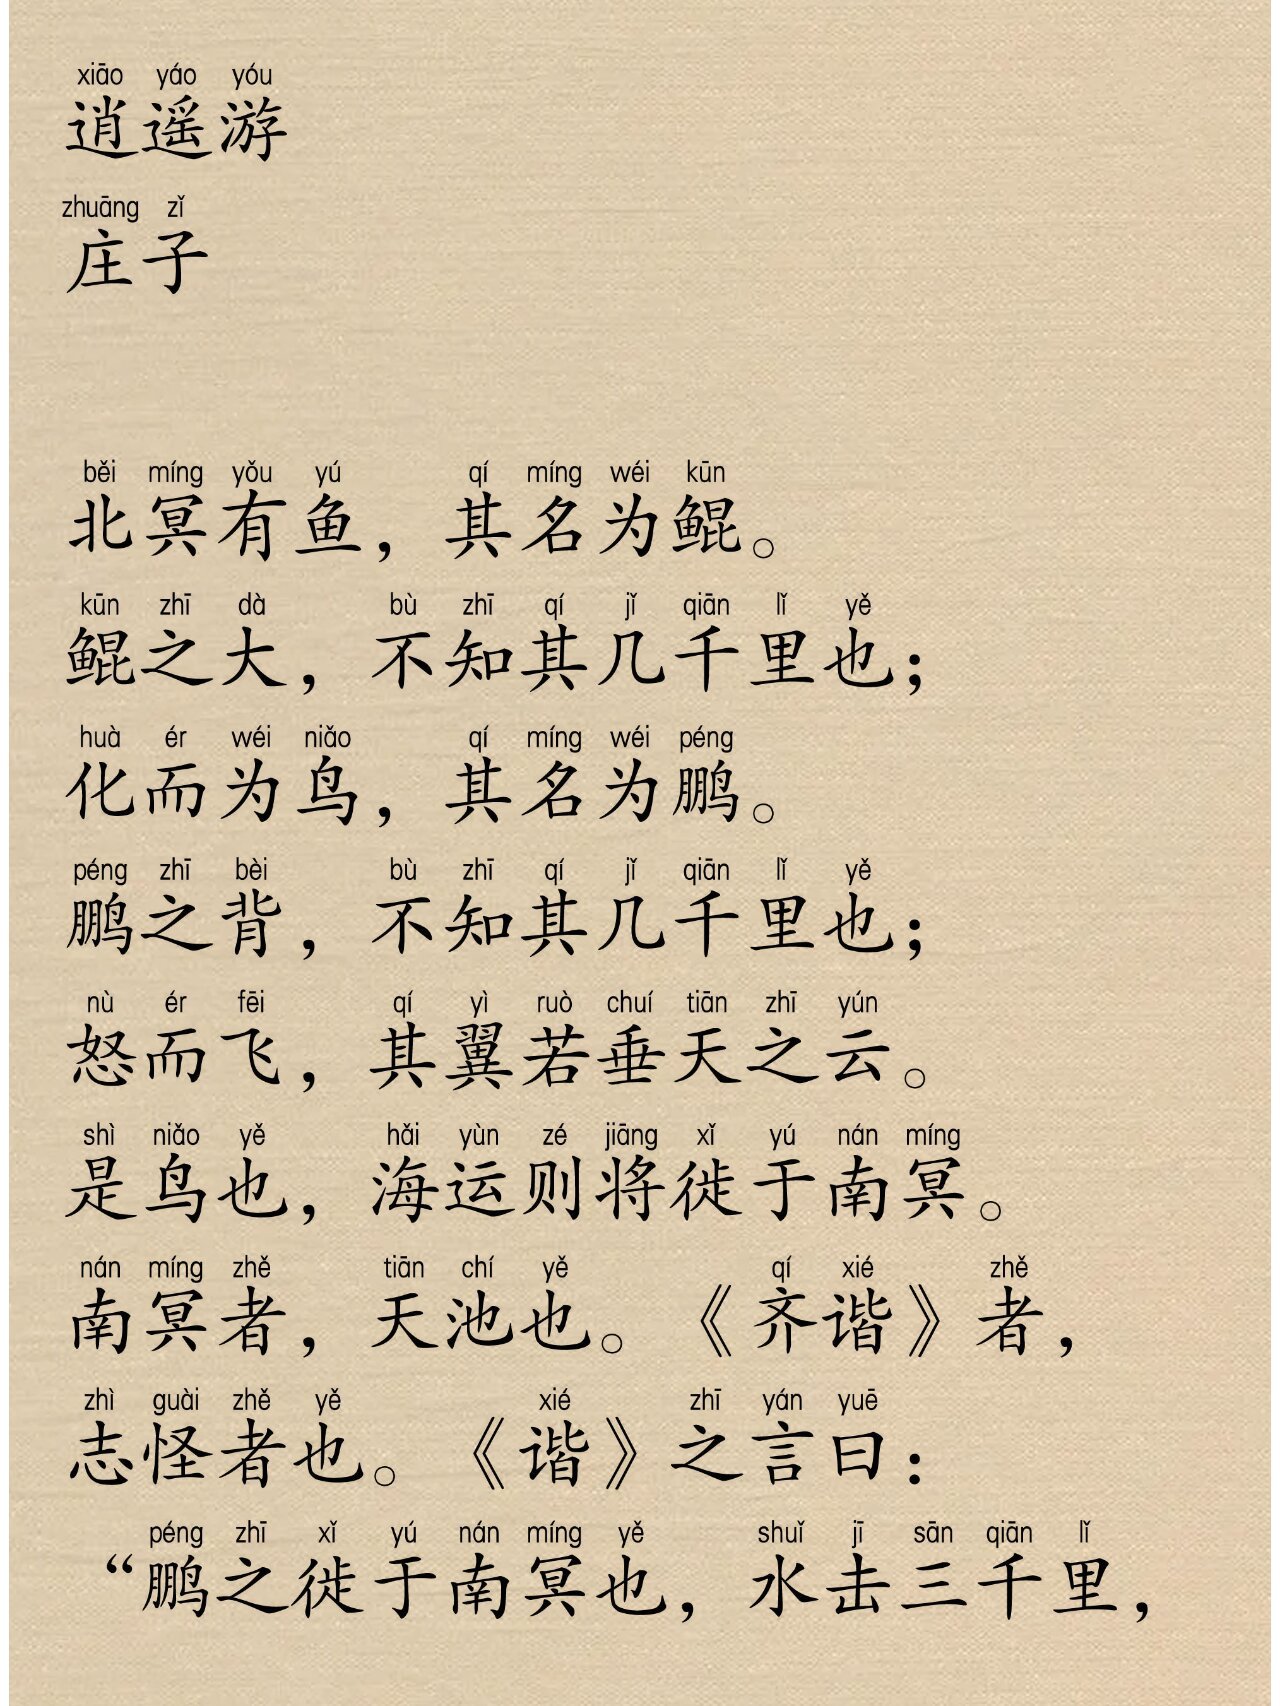 xiāo yáo yóu
逍遥游
zhuāng zǐ
庄子
běi míng yǒu yú qí míng wéi kūn
北冥有鱼，其名为鲲。
kūn zhī dà bù zhī qí jǐ qiān lǐ yě
鲲之大，不知其几千里也；
huà ér wéi niǎo qí míng wéi péng
化而为鸟，其名为鹏。
péng zhī bèi bù zhī qí jǐ qiān lǐ yě
鹏之背，不知其几千里也；
nù ér fēi qí yì ruò chuí tiān zhī yún
怒而飞，其翼若垂天之云。
shì niǎo yě hǎi yùn zé jiāng xǐ yú nán míng
是鸟也，海运则将徙于南冥。
nán míng zhě tiān chí yě qí xié zhě
南冥者，天池也。《齐谐》者，
zhì guài zhě yě xié zhī yán yuē
志怪者也。《谐》之言曰：
péng zhī xǐ yú nán míng yě shuǐ jī sān qiān lǐ
“鹏之徙于南冥也，水击三千里，